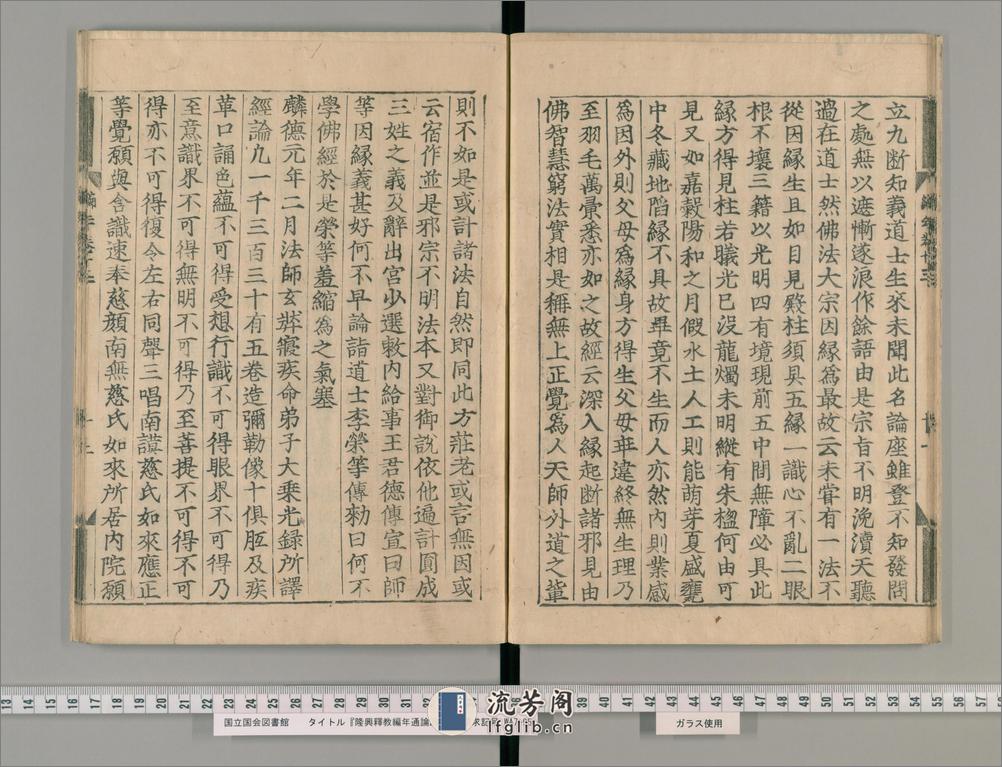 立九断知義道士生來未聞此名論座雖登不知發問
之處無以遮慚遂浪作餘語由是宗旨不明浼瀆天聽
過在道士然佛法大宗因緣爲最故云未甞有一法不
從因緣生且如目見殿柱須具五緣一識心不亂二眼
根不壞三籍以光明四有境現前五中間無障必具此
緣方得見柱若曦光已沒龍燭未明縱有朱楹何由可
見又如嘉穀陽和之月假水土人工則能萌芽夏盛甕
中冬藏地陷緣不具故畢竟不生而人亦然內則業感
爲因外則父母爲緣身方得生父母乖違終無生理乃
至羽毛萬彙悉亦如之故經云深入緣起断諸邪見由
佛智慧窮法實相是稱無上正覺爲人天師外道之軰
則不如是或計諸法自然即同此方莊老或言無因或
云宿作並是邪宗不明法本又對御說依他遍計圓成
三姓之義及辭出宮少選敕內給事王君德傳宣曰師
等因緣義甚好何不早論詣道士李榮等傳勑曰何不
學佛經於是榮等羞縮爲之氣塞
麟德元年二月法師玄奘寢疾命弟子大乗光録所譯
經論九一千三百三十有五卷造彌勒像十俱胝及疾
革口誦色蘊不可得受想行識不可得眼界不可得乃
至意識界不可得無明不可得乃至菩提不可得不可
得亦不可得復令左右同聲三唱南謨慈氏如來應正
等覺願與含識速奉慈顔南無慈氏如來所居內院願
13 14 15 16 17 18 19 20 21 22 23 24 25 26 27 28 29 30 31 32 39 40 41 42 43 44 45 46 47 48 49 50 51 52 53 54 55 56 57
国立国会図書館 タイトル『隆興釋教編年通論
流芳阁
lfglib.cn
ガラス使用